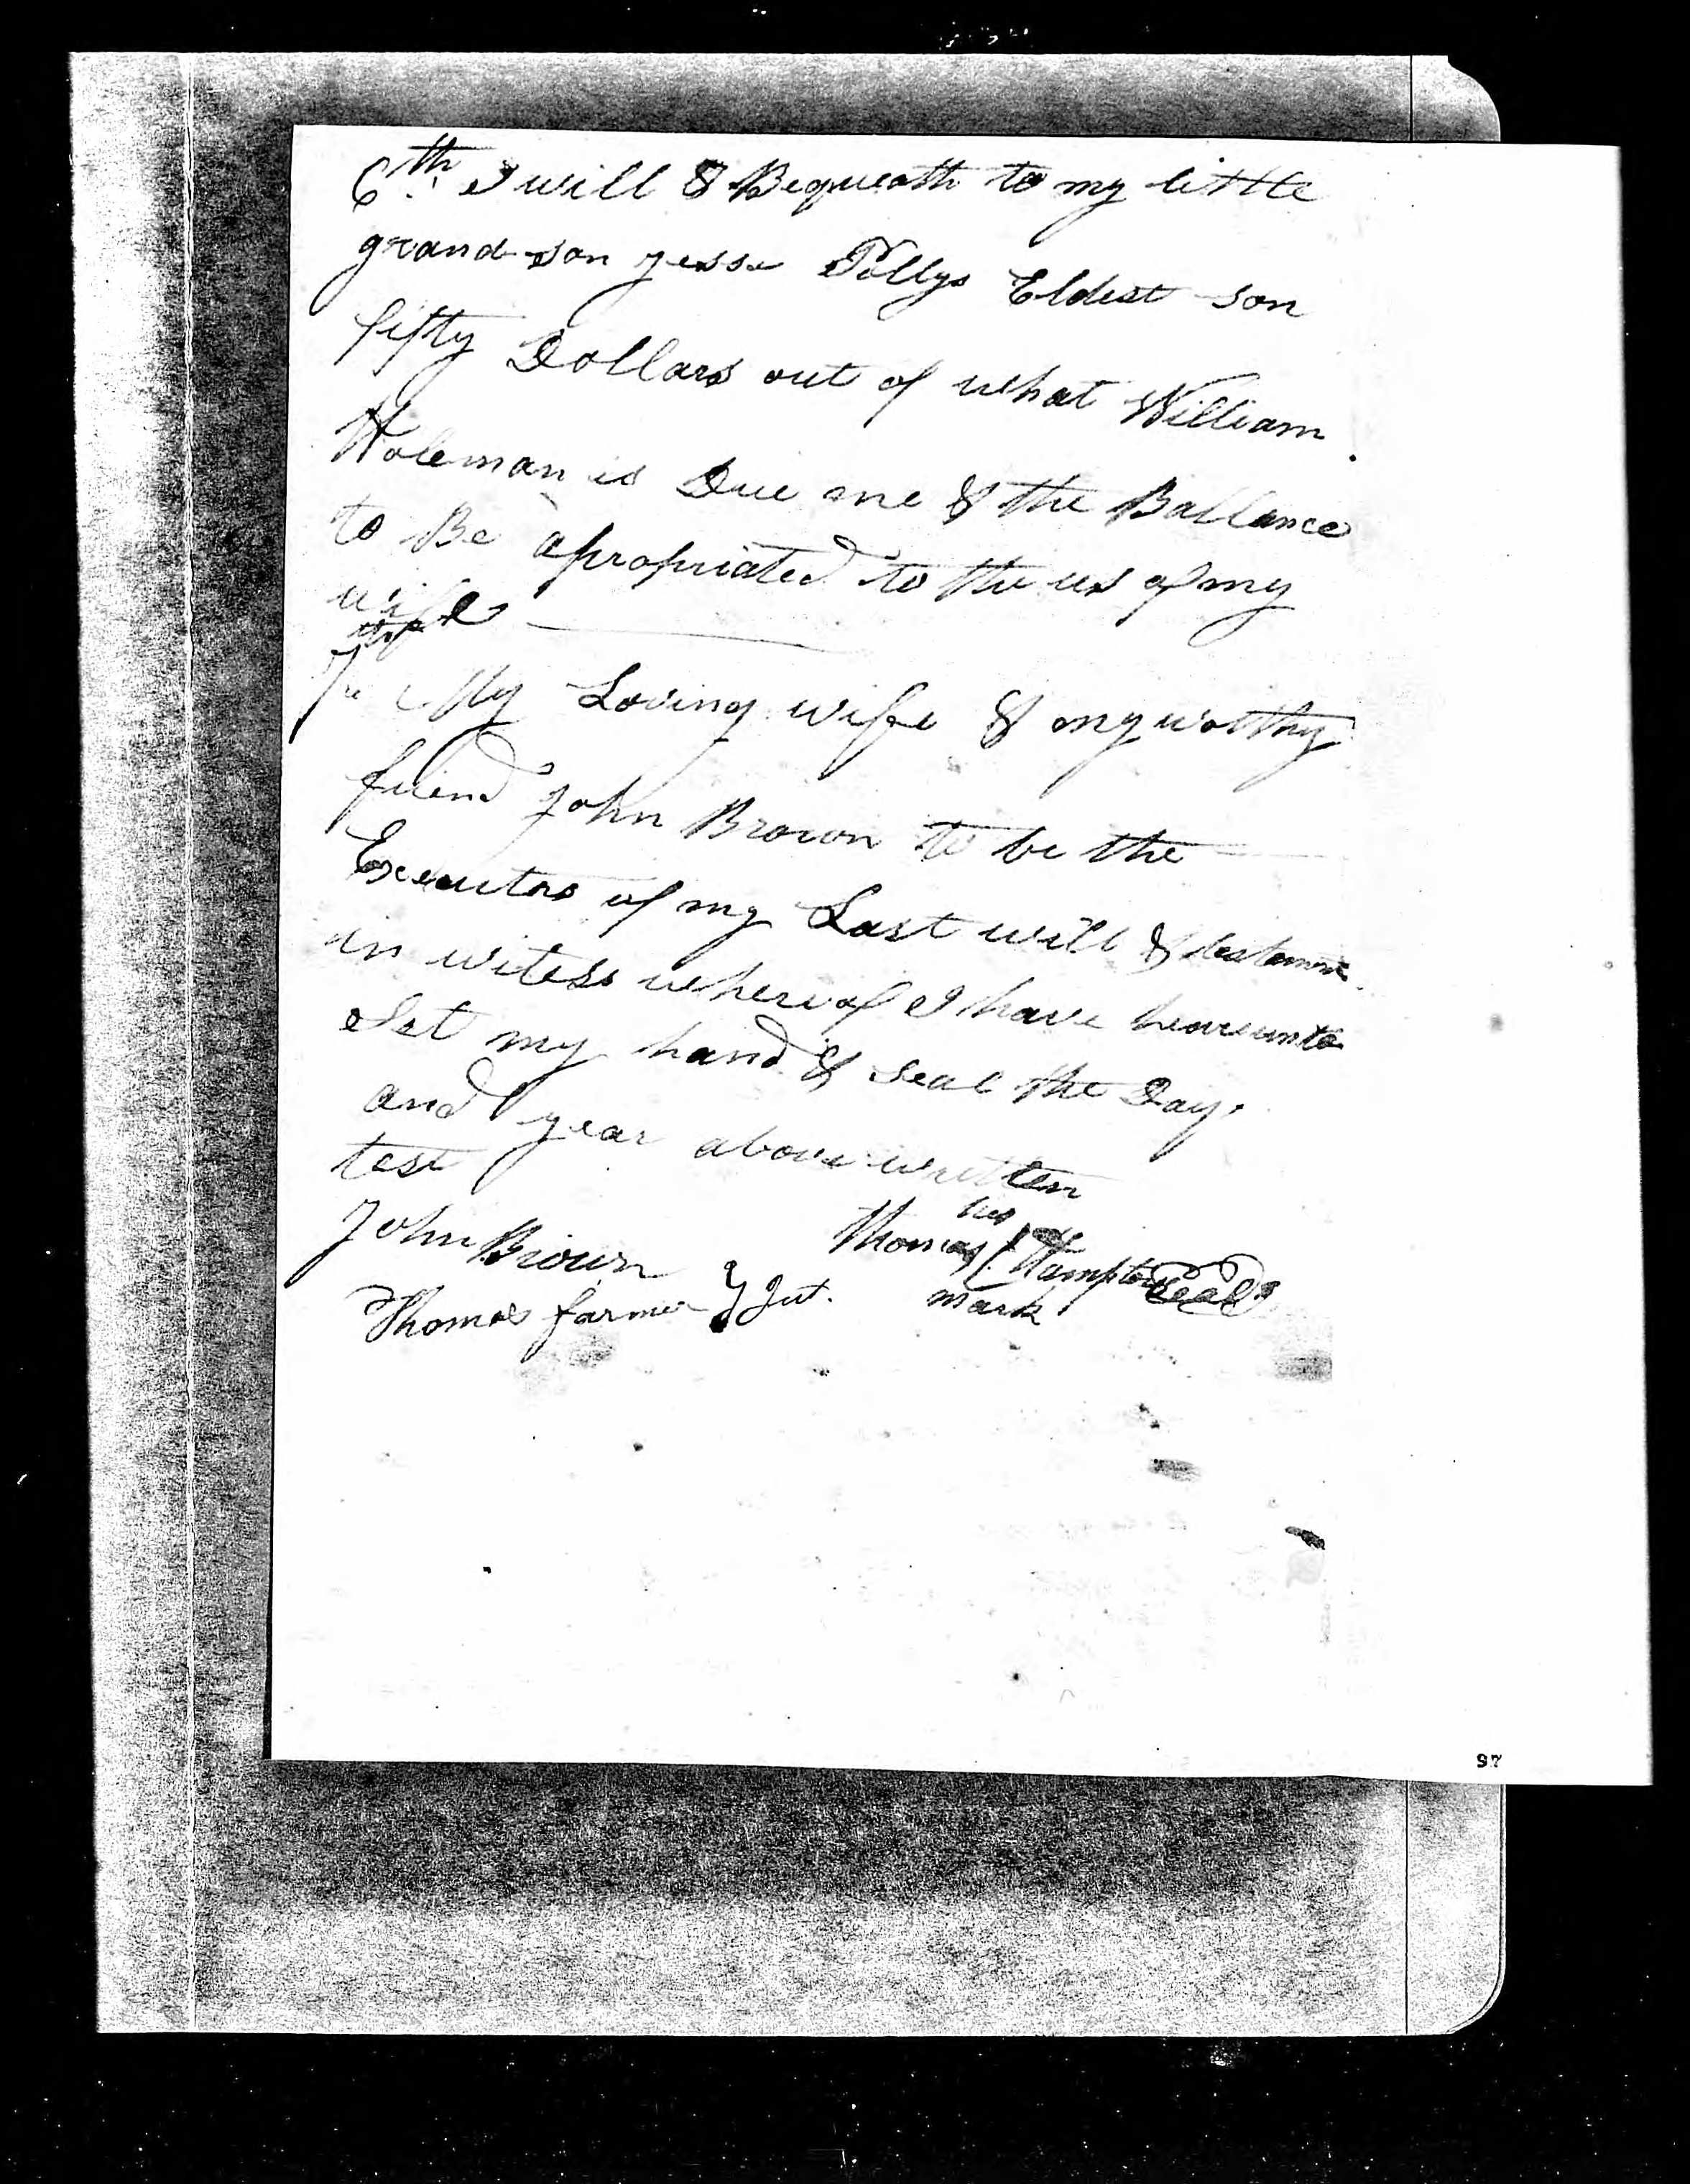 6th. I will & Bequeath to my little
grand son jesse Pollys Eldest son
fifty Dollars out of what William
Holeman is Due me & the Ballance
to Be apropriated to the us of my
wife
My Loving wife & my worthy
friend John Brown to be the
Executors of my Last will &
in witess whereof I have heareunto
Set my hand & seal the Day
and year above written
test
his
John Brown Thomas Hampton Seal
Thomas farmer Jut. mark
97